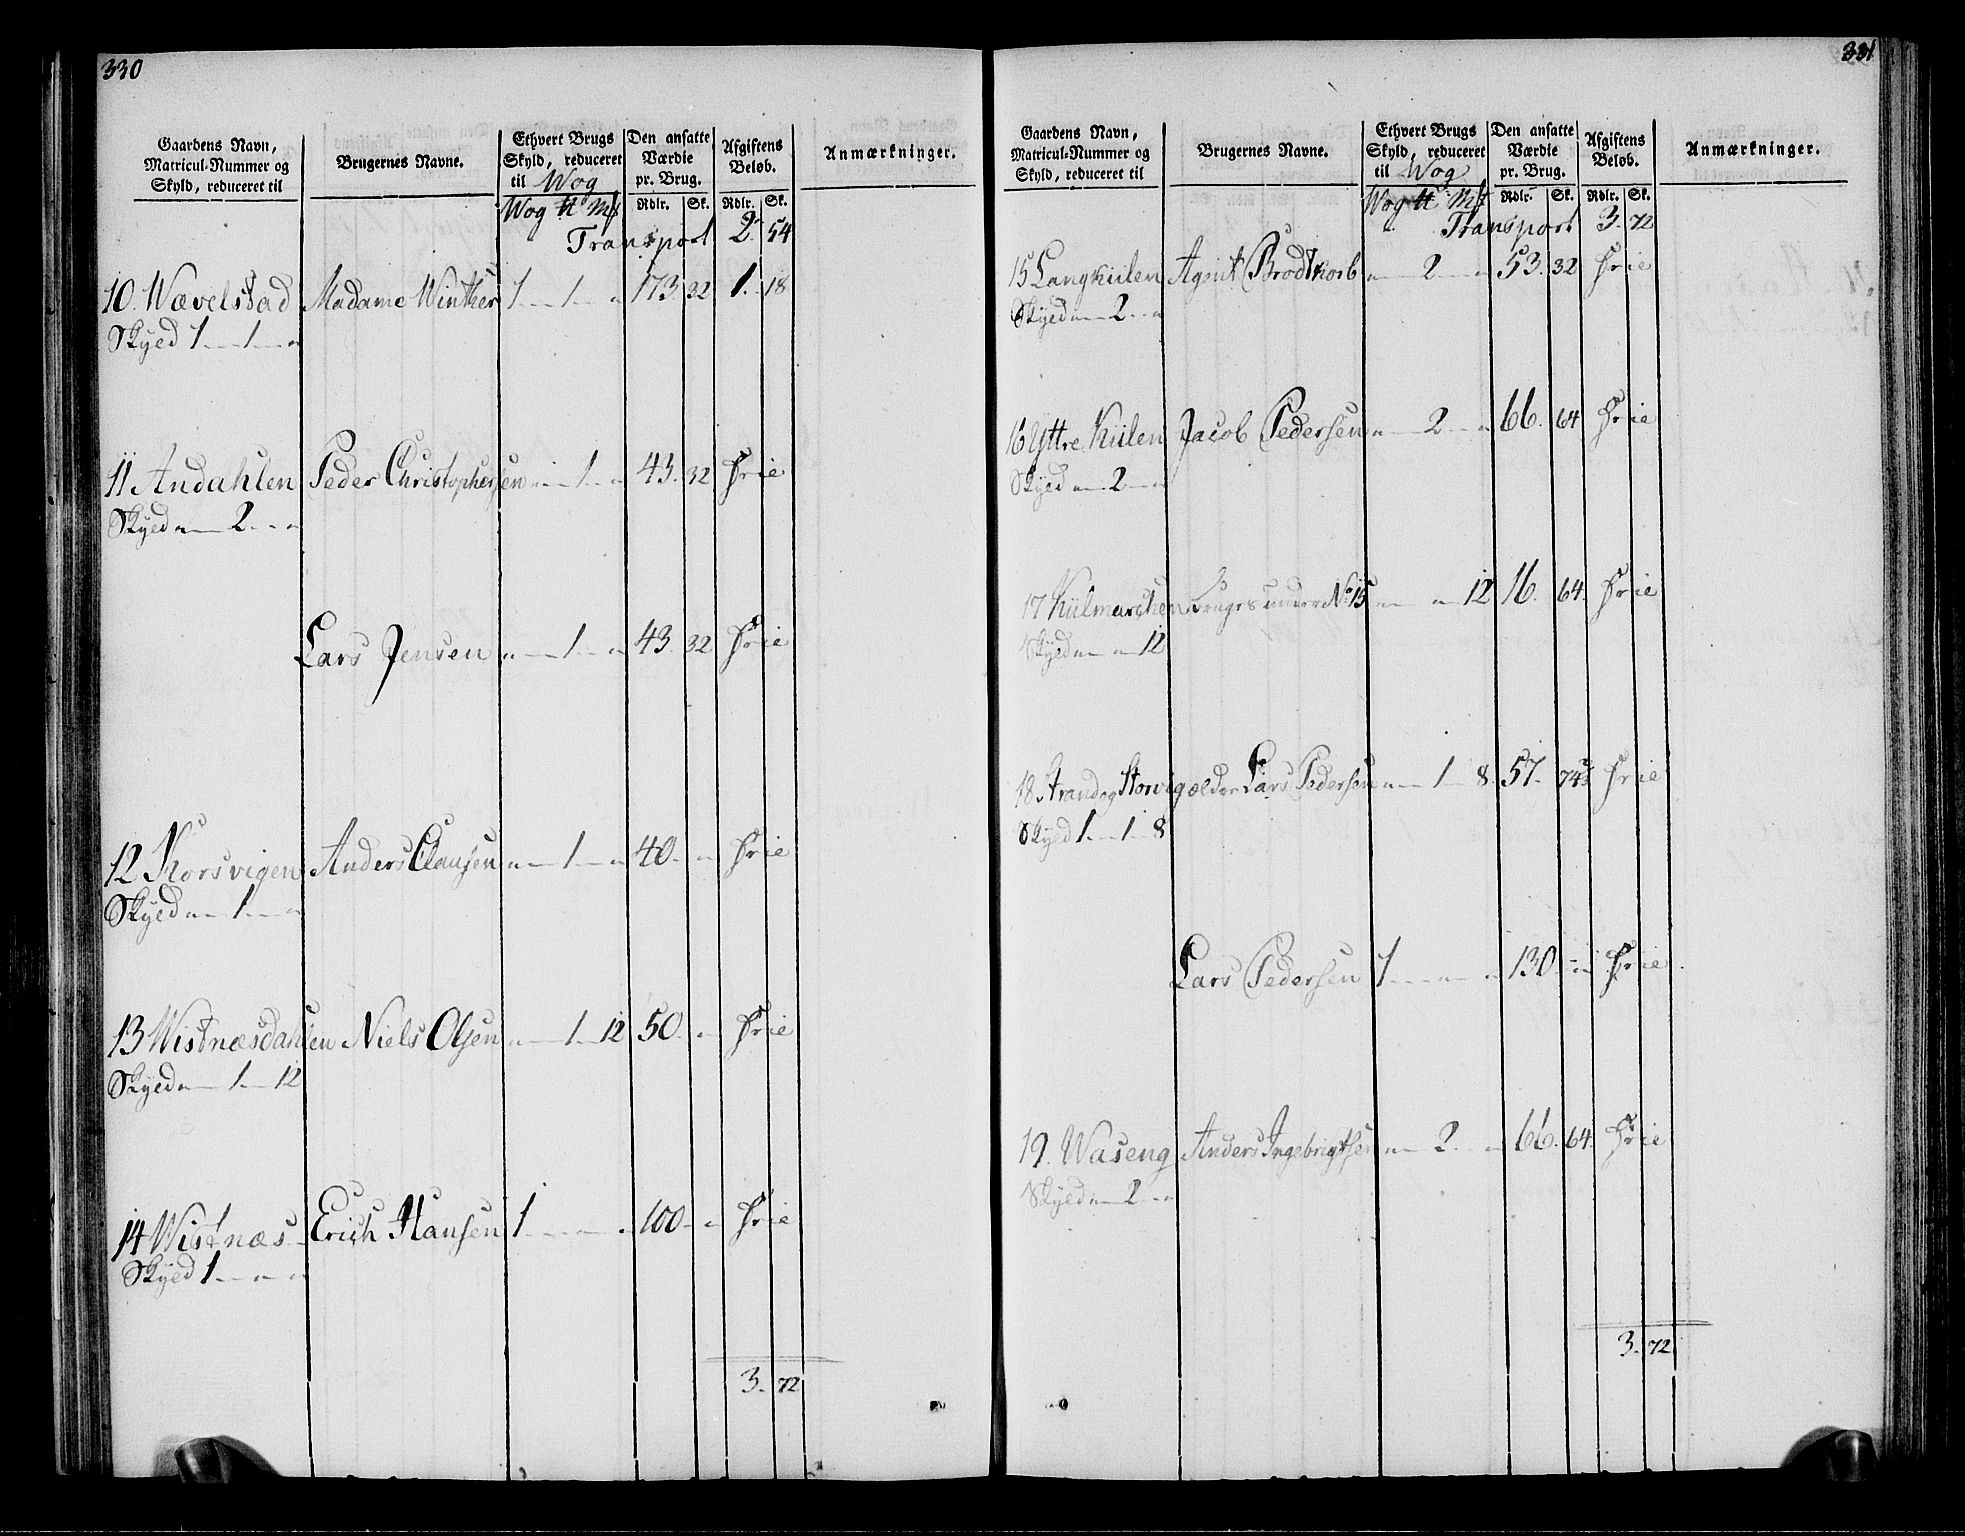 330
Gaardens Navn, Matricul-Nummer og Skyld, reduceret til
Brugernes Navne.
Ethvert Brugs Skyld, reduceret til Wog
Den ansatte Værdie pr. Brug.
Afgiftens Beløb.
Anmærkninger.
Wog tt Mk Rdlr. Sk. Rdlr. Sk.
Transport 2 54
10. Wævelstad Madame Winther 1 - 1 - " 173. 32 1. 18
Skyed 1 - 1 - "
11 Andahlen Peder Christophersen " - 1 - " 43. 32 Frie
Skyed " - 2 - "
Lars Jensen " - 1 - " 43. 32 Frie
12 Korsvigen Anders Clausen " - 1 - " 40. " Frie
Skyed " - 1 - "
13 Wistnæsdahlen Niels Olsen " - 1 - 12 50. " Frie
Skyed " - 1 - 12
14 Wistnæs Erich Hansen 1 - " - " 100 - " Frie
Skyed 1 - " - "
3. 72
331
Gaardens Navn, Matricul-Nummer og Skyld, reduceret til
Brugernes Navne.
Ethvert Brugs Skyld, reduceret til Wog
Den ansatte Værdie pr. Brug.
Afgiftens Beløb.
Anmærkninger.
Wog tt Mk Rdlr. Sk. Rdlr. Sk.
Transport 3. 72
15 Langkiilen Agent Brodtkorb " - 2 - " 53. 32 Frie
Skyed " - 2 - "
16 Yttre Kiilen Jacob Pedersen " - 2 - " 66. 64 Frie
Skyed " - 2 - "
17 Kiilmarchen bruges under No 15 " - " 12 16. 64. Frie
Skyed " - " 12
18 Strand og Storvig ælder Lars Pedersen " - 1 - 8 57. Frie
Skyed 1 - 1 - 8
Lars Pedersen 1 - " - " 130 - " Frie
19. Waseng Anders Ingebrigtsen " - 2 - " 66. 64. Frie
Skyed " - 2 - "
3. 72